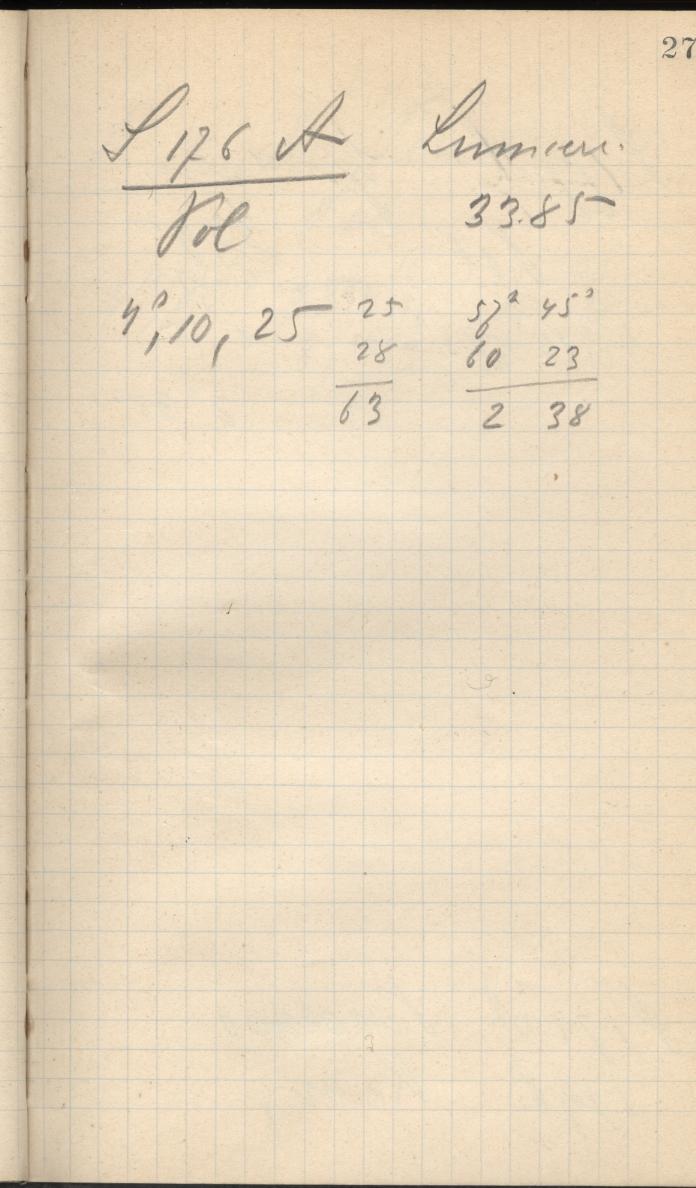 27
S 176 A Lumiere.
Vol 33.85
4°, 10, 25 25 57² 45³
28 60 23
63 2 38